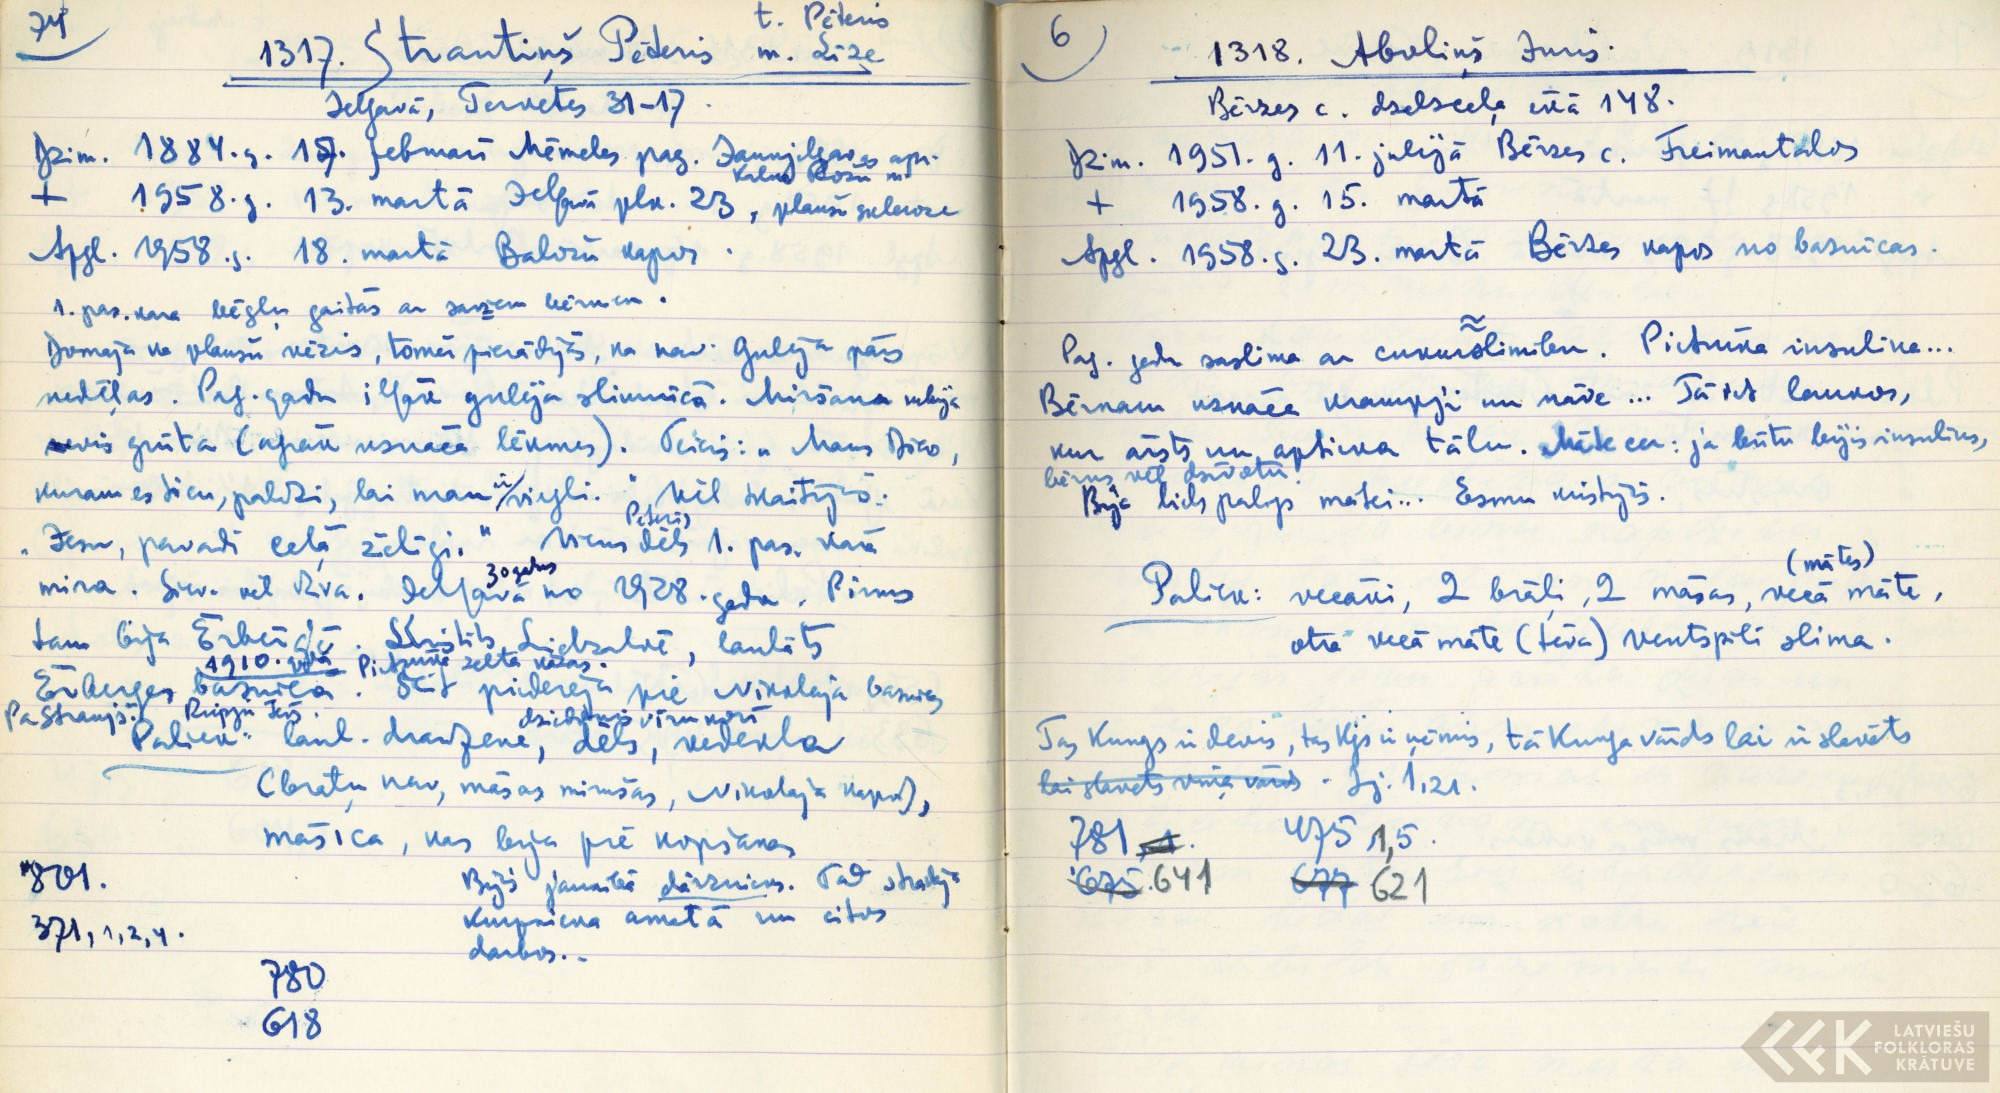 74
1317. Strautiņš Pēteris
t. Pēteris
m. Līze
Jelgavā, Tērvetes 31-17.
Dzim. 1884. g. 17. februarī Mēmeles pag. Jaunjelgavas apr.
Kalna Rozu m.
+ 1958. g. 13. martā Jelgavā plk. 23, plaušu skleroze
Apgl. 1958. g. 18. martā Baložu kapos.
1. pas. kara bēgļu gaitās ar saviem bērniem.
Domāja ka plaušu vēzis, tomēr pierādījās, ka nav. Gulēja pārs
nedēļas. Pag. gadu ilgāk gulēja slimnīcā. Miršana nebija
visai grūta (agrāk uznāca lēkmes). Teicis: "Mans Dievs,
kuram es ticu, palīdzi, lai man ir viegli." Vēl skaitījis:
"Jesu, pavadi ceļā žēlīgi." Viens dēls Pēteris 1. pas. karā
mira. Siev. vēl dzīva. Jelgavā 30 gadus no 1928. gada. Pirms
tam bija Ērberģē. Kristīts Lielzalvē, laulāts
1910. gadā Pietrūka zelta kāzas.
Ērberģes baznīcā. Šeit piederēja pie Nikolaja baznīcas
dziedājis vīru korī
Paliek: laul. draudzene, dēls, vedekla
(brāļu nav, māsas mirušas, Nikolaja kapos),
māsīca, kas bija pie kopšanas
801.
371, 1, 2, 4.
Bijis jaunībā dārznieks. Tad strādāja
kurpnieka amatā un citos
darbos...
780
618
6
1318. Āboliņš Juris.
Bērzes c. dzelzceļa ēkā 148.
Dzim. 1951. g. 11. julijā Bērzes c. Freimantalos
+ 1958. g. 15. martā
Apgl. 1958. g. 23. martā Bērzes kapos no baznīcas.
Pag. gadu saslima ar cukurslimību. Pietrūka insulina...
Bērnam uznāca krampji un nāve... Tā iet laukos,
kur ārsts un aptieka tālu. Māte: ja būtu bijis insulins,
bērns vēl dzīvotu!
Bija liels palīgs mātei... Esmu kristījis.
Paliek: vecāki, 2 brāļi, 2 māsas, vecā māte (mātes),
otra vecā māte (tēva) Ventspilī slima.
Tas Kungs ir devis, tas Kgs ir ņēmis, tā Kunga vārds lai ir slavēts
lai slavēts viņa vārds. Īj. 1,21.
781, 1. 475 1,5.
675. 641 677 621
LATVIEŠU
FOLKLORAS
KRĀTUVE